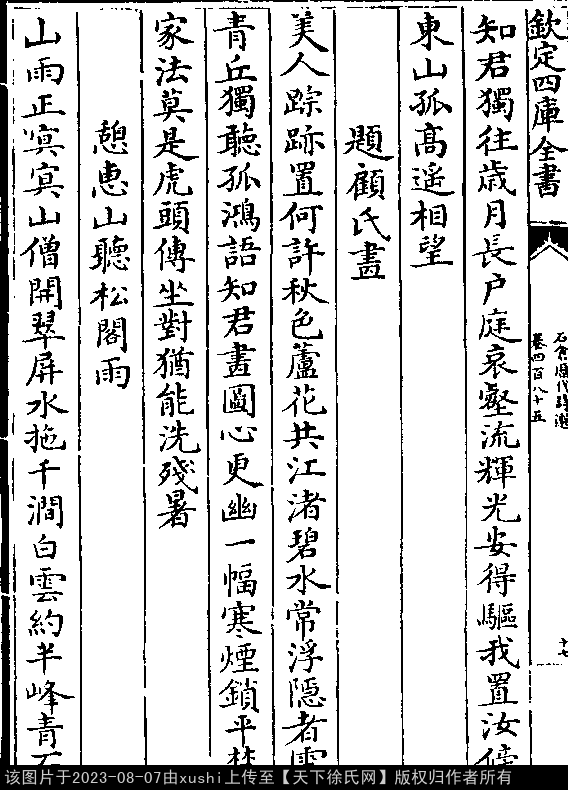 欽定四庫全書
卷四百八十五
十七
知君獨往歲月長戸庭哀壑流輝光安得驅我置汝傍
東山孤髙遥相望
題顧氏畫
美人踪跡置何許秋色蘆花共江渚碧水常浮隱者
青丘獨聽孤鴻語知君畫圖心更幽一幅寒煙鎖平
家法莫是虎頭傳坐對猶能洗殘暑
憩惠山聽松閣雨
山雨正㝠㝠山僧開翠屏水拖千澗白雲約半峰青
该图片于2023-08-07由xushi上传至【天下徐氏网】版权归作者所有